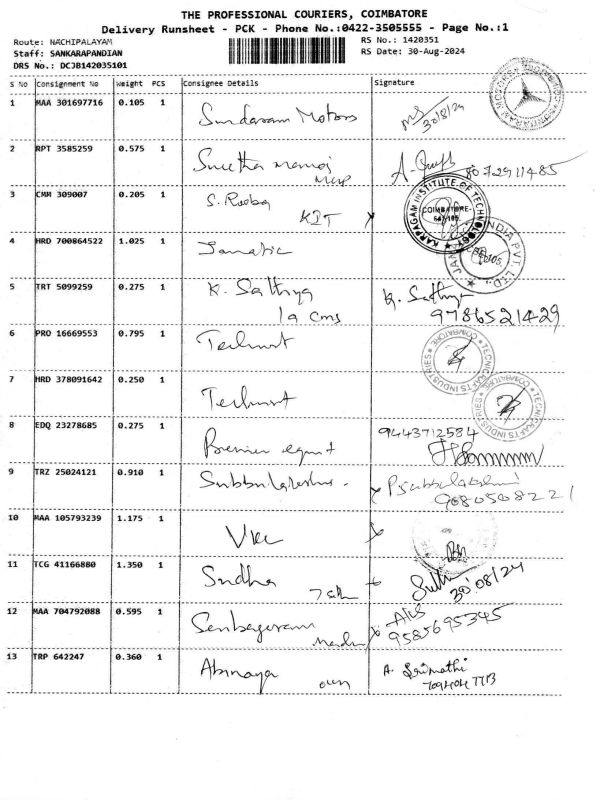 THE PROFESSIONAL COURIERS, COIMBATORE
Delivery Runsheet - PCK - Phone No.:0422-3505555 - Page No.:1
Route: NACHIPALAYAM
RS No.: 1420351
Staff: SANKARAPANDIAN
RS Date: 30-Aug-2024
DRS No.: DCJB142035101
S No Consignment No Weight PCS Consignee Details Signature
1 MAA 301697716 0.105 1 Sundaram Motors 30/8/24
2 RPT 3585259 0.575 1
3 CMM 309007 0.205 1 KIT
KARPAGAM INSTITUTE OF TECHNOLOGY
COIMBATORE-
641 105.
4 HRD 700864522 1.025 1 Jamatic
5 TRT 5099259 0.275 1 K. Sathya K. Sathya
9786521429
6 PRO 16669553 0.795 1
TECNICRAFTS INDUSTRIES COIMBATORE
7 HRD 378091642 0.250 1
TECNICRAFTS INDUSTRIES COIMBATORE
8 EDQ 23278685 0.275 1 Premier 9443712584
9 TRZ 25024121 0.910 1 9080508221
10 MAA 105793239 1.175 1
11 TCG 41166880 1.350 1 Sudha 30/08/24
12 MAA 704792088 0.595 1 9585695345
13 TRP 642247 0.360 1 Abinaya own A. Srimathi